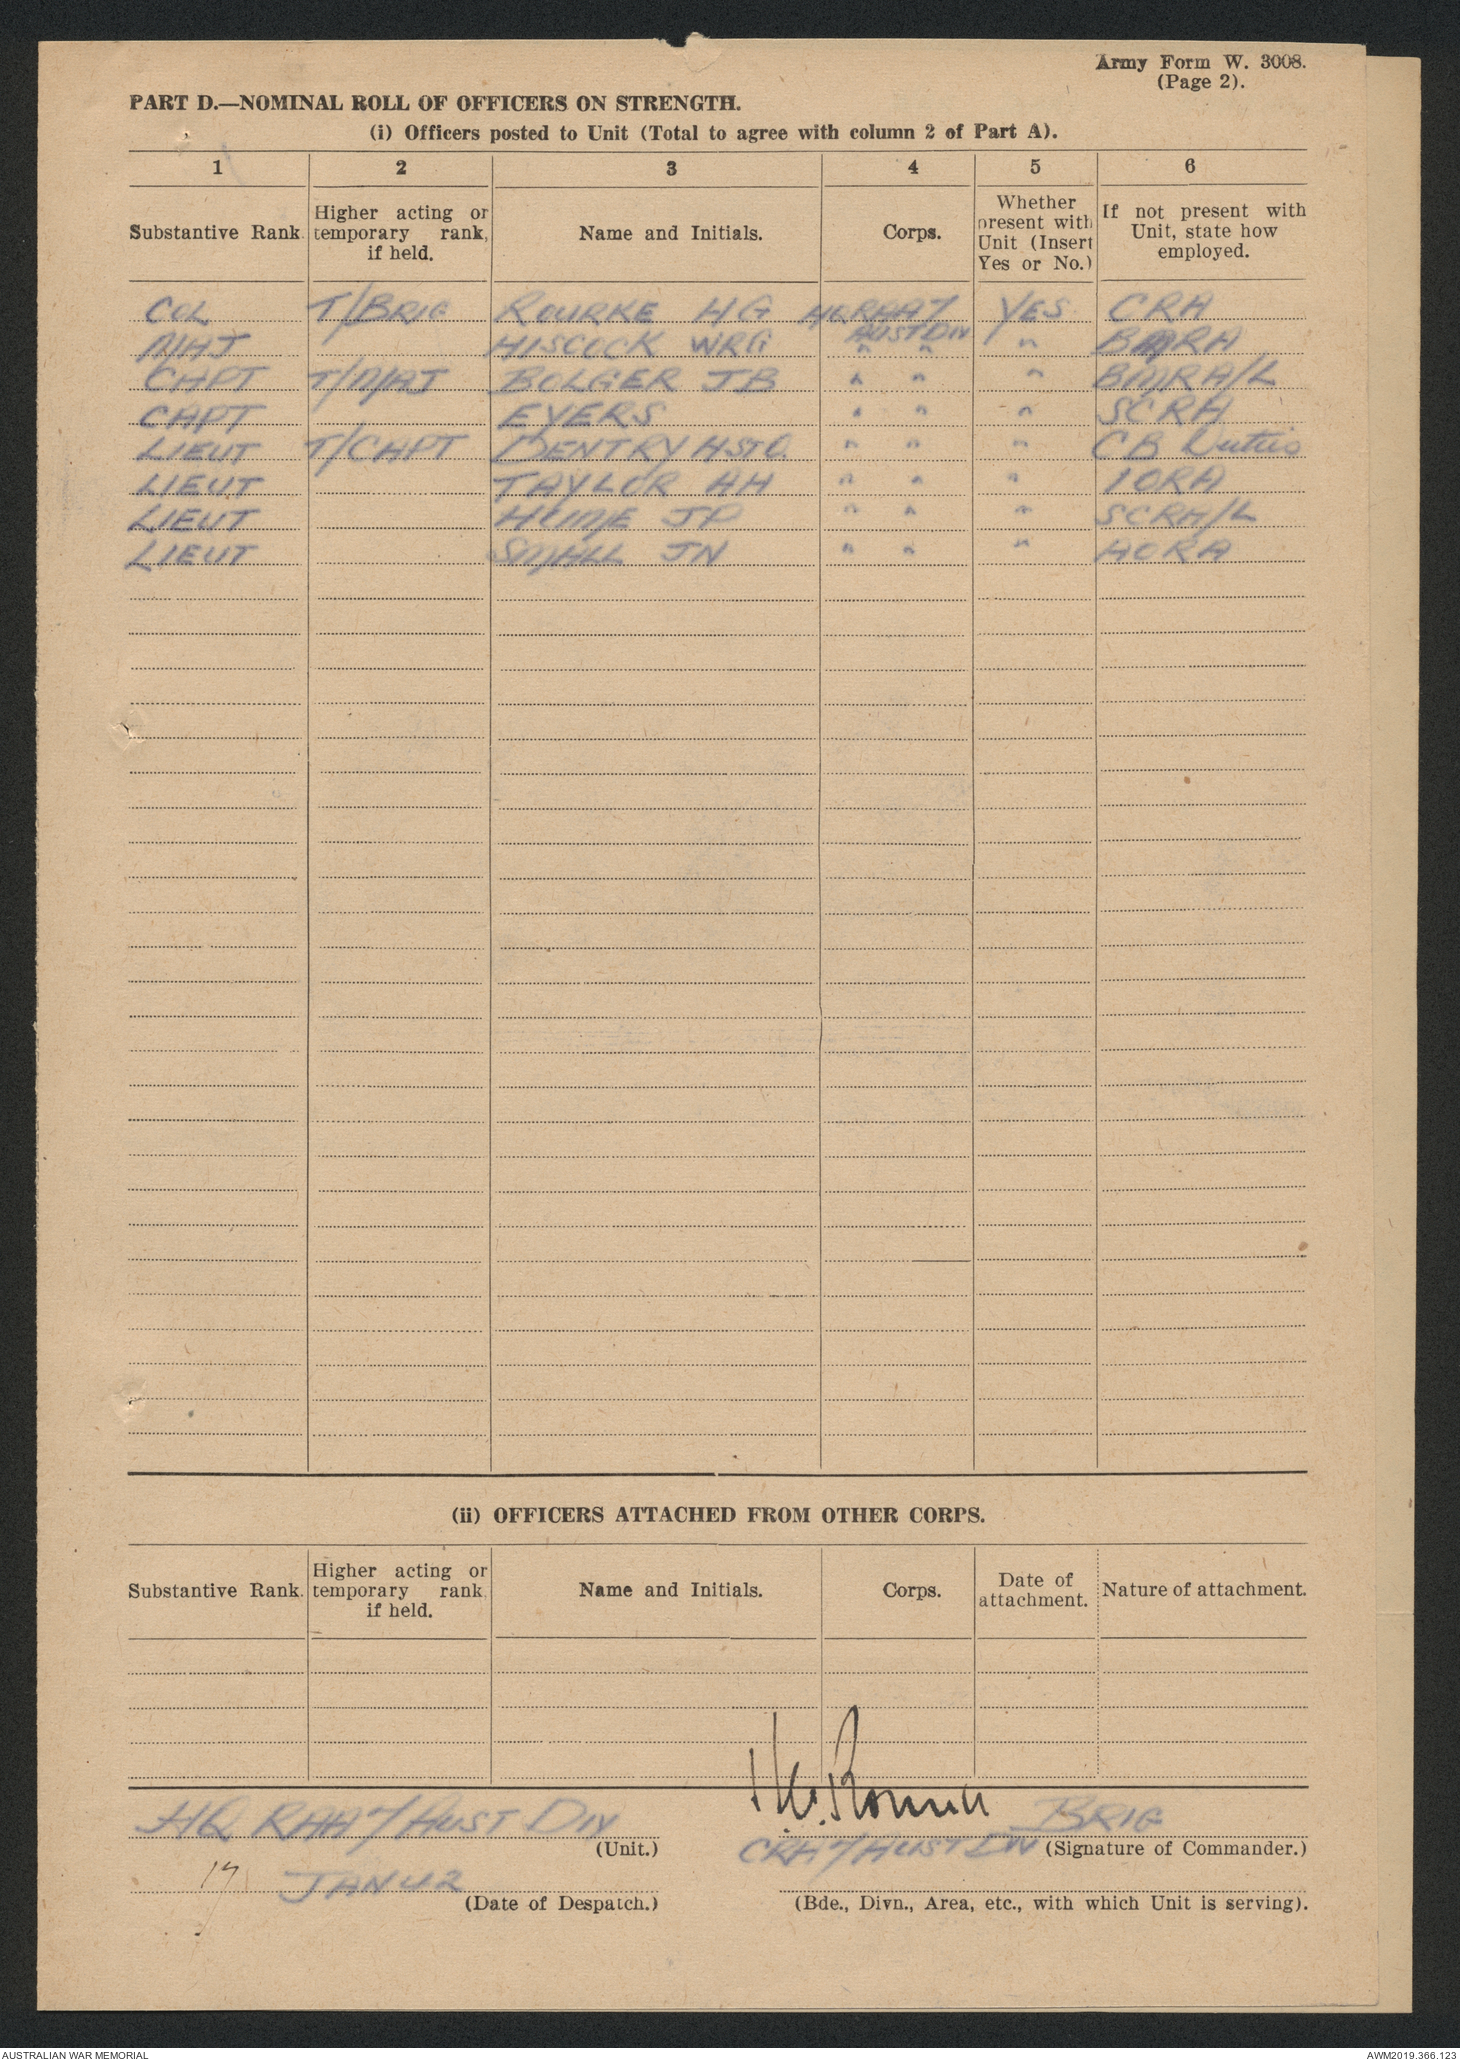 Army Form W. 3008.
(Page 2).
PART D.—NOMINAL ROLL OF OFFICERS ON STRENGTH.
(i) Officers posted to Unit (Total to agree with column 2 of Part A).
1 2 3 4 5 6
Substantive Rank. Higher acting or temporary rank, if held. Name and Initials. Corps. Whether present with Unit (Insert Yes or No.) If not present with Unit, state how employed.
COL T/BRIG ROURKE HG HQ RAA 7 AUST DIV YES CRA
MAJ HISCOCK WRG " " " BMRA
CAPT T/MAJ BOLGER JB " " " BMRA/L
CAPT EYERS " " " SCRA
LIEUT T/CAPT DENTRY H STO. " " " CB Duties
LIEUT TAYLOR AH " " " IORA
LIEUT HUME JP " " " SCRA/L
LIEUT SMALL JN " " " AORA
(ii) OFFICERS ATTACHED FROM OTHER CORPS.
Substantive Rank. Higher acting or temporary rank, if held. Name and Initials. Corps. Date of attachment. Nature of attachment.
HQ RAA 7 AUST DIV BRIG
(Unit.) CRA 7 AUST DIV (Signature of Commander.)
17 JAN 42
(Date of Despatch.) (Bde., Divn., Area, etc., with which Unit is serving).
AUSTRALIAN WAR MEMORIAL AWM2019.366.123